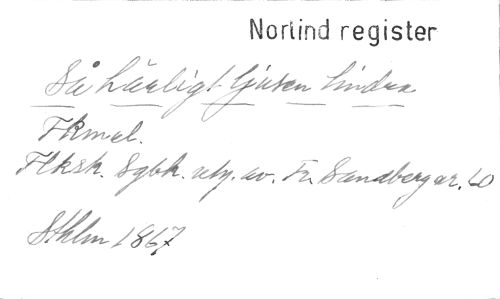 Norlind register
Så härligt ljusen tindra
Fkmel.
Flksk. Sgbk. utg. av. Fr. Sandberg nr. 60
Sthlm 1867